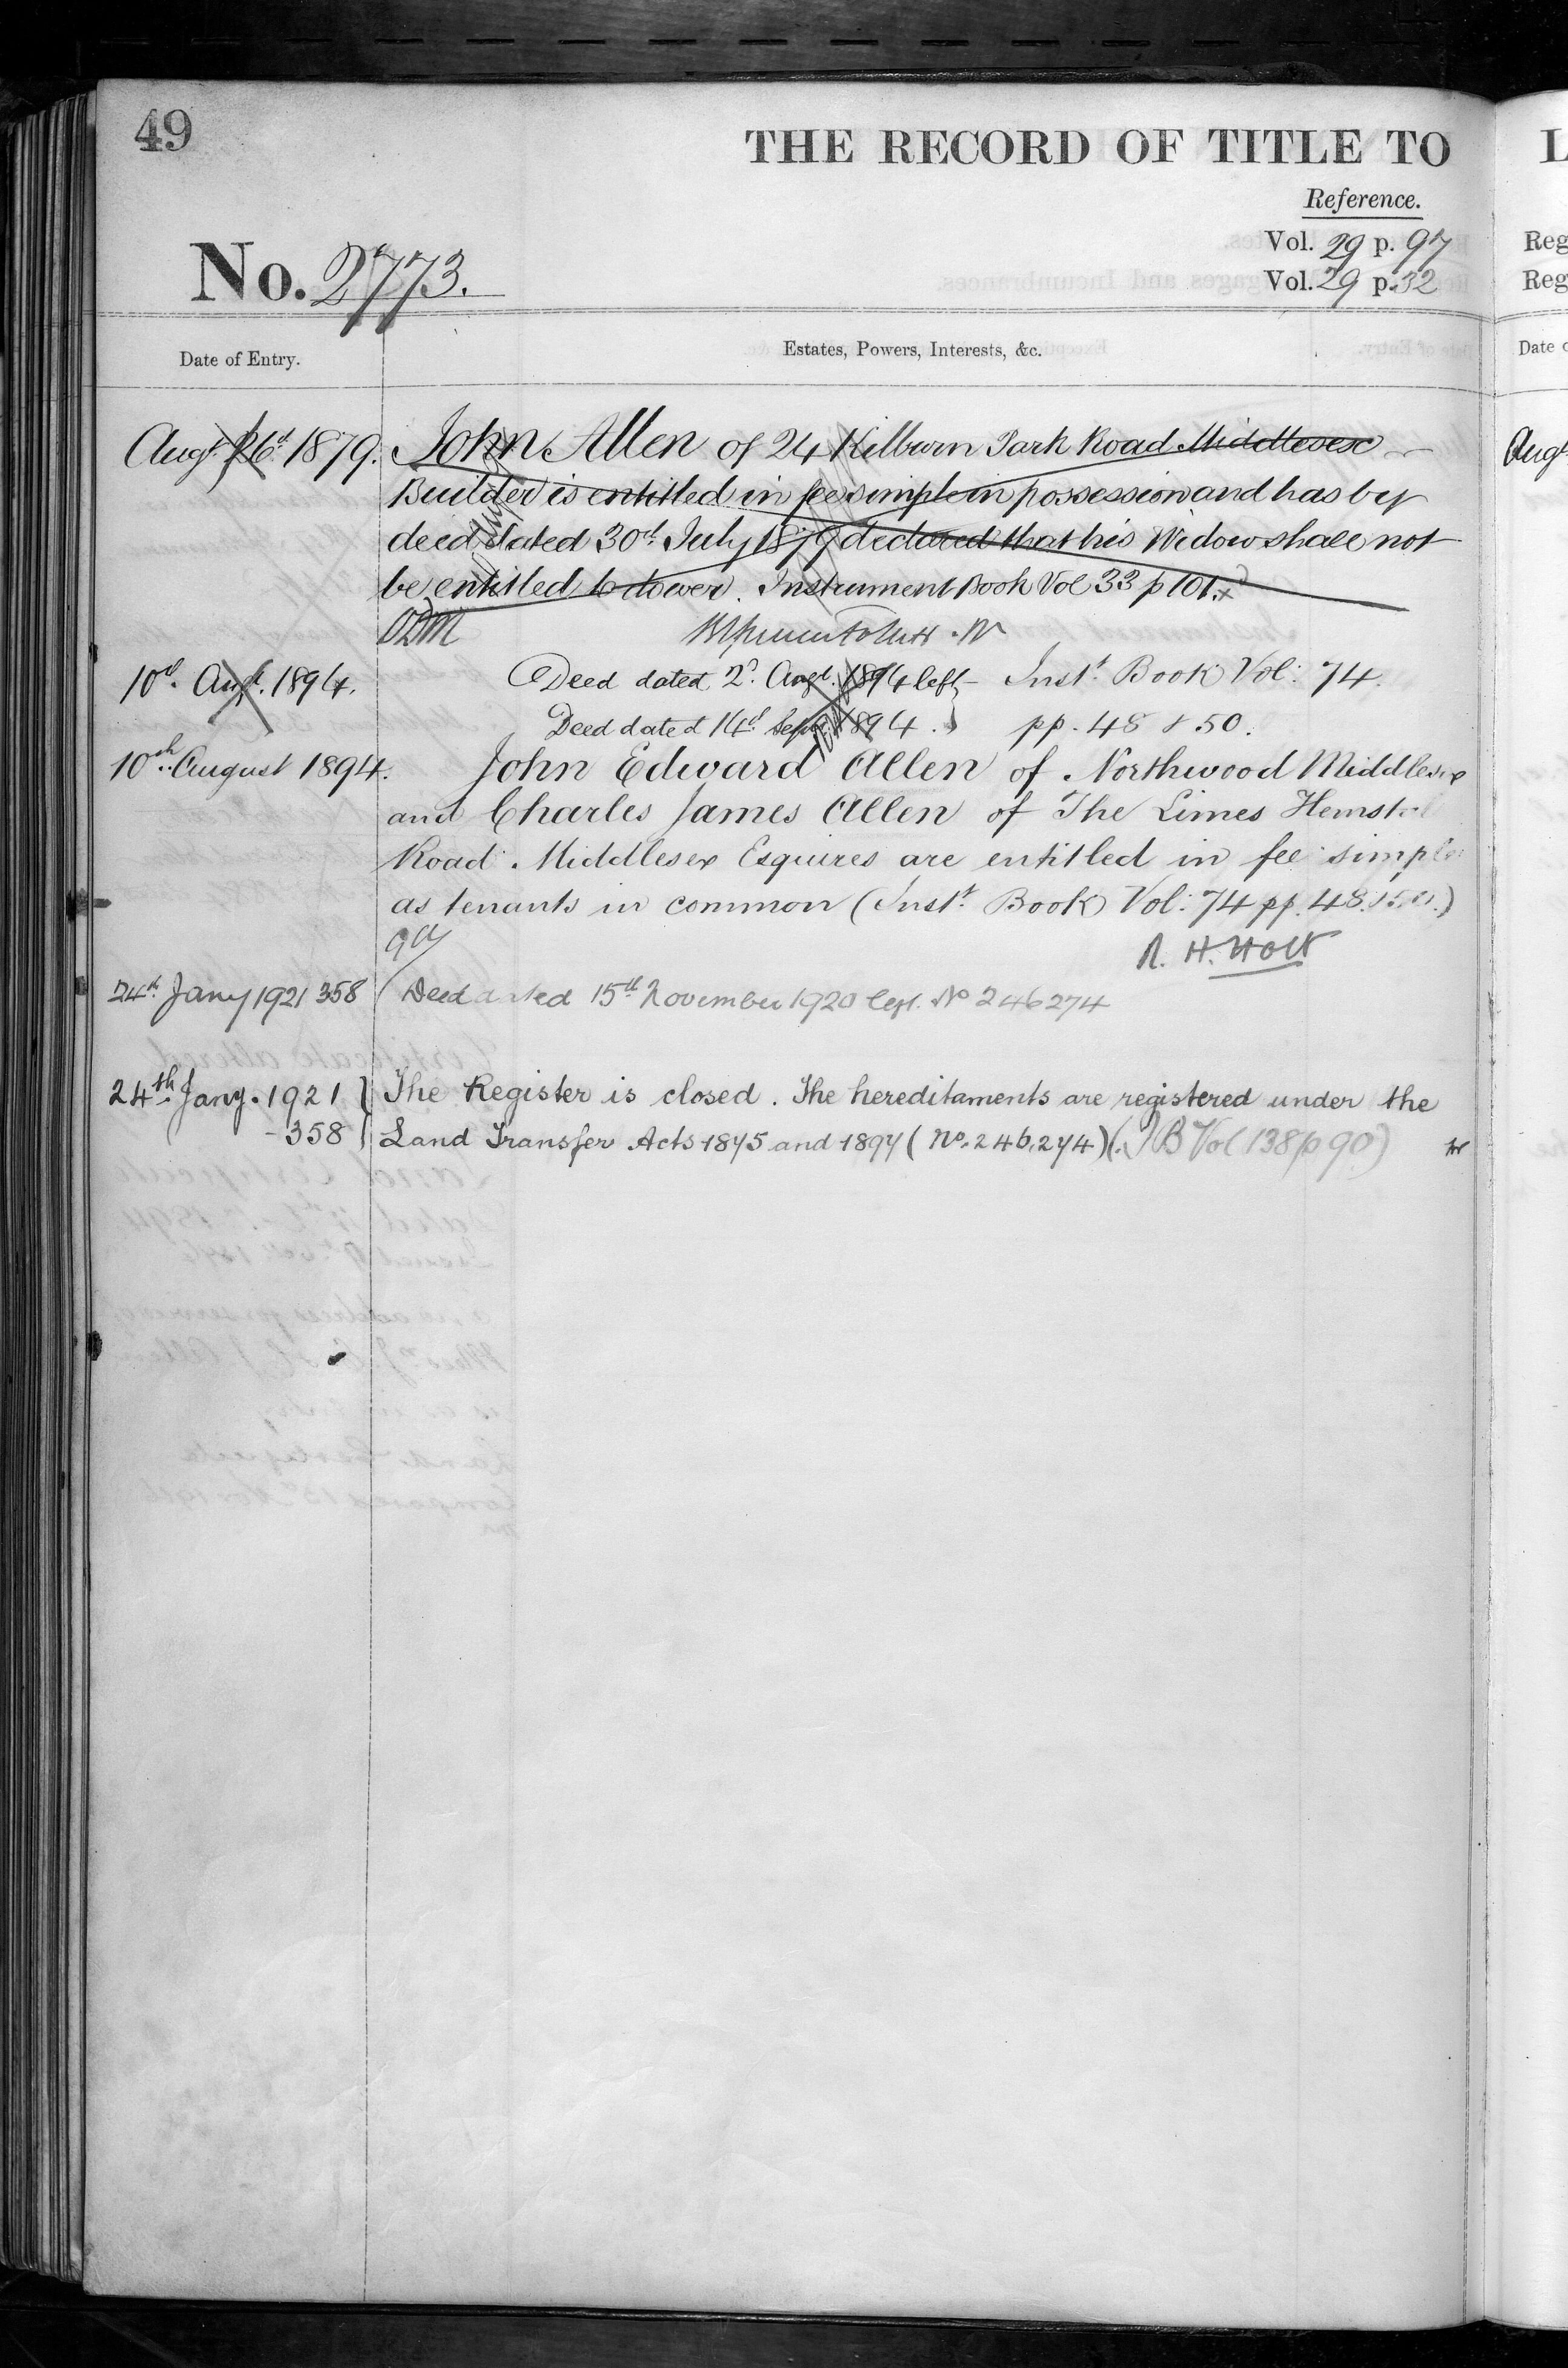 49
THE RECORD OF TITLE TO
L
Reference.
Vol. 29 p. 97
Vol. 29 p. 32
Reg
Reg
No. 2773.
Date of Entry.
Estates, Powers, Interests, &c.
Date o
Augt. 1879. John Allen of 24 Kilburn Park Road Middlesex
Augt
Builder is entitled in fee simple in possession and has by
deed dated 30th July 1879 declared that his Widow shall not
be entitled to dower. Instrument Book Vol 33 p 101.
10th Augt. 1894. Deed dated 2d. Augt. 1894 left Inst. Book Vol: 74.
Deed dated 14th Sept. 1894. pp. 48 & 50.
10th August 1894. John Edward Allen of Northwood Middlesex
and Charles James Allen of The Limes
Road. Middlesex Esquires are entitled in fee simple
as tenants in common (Inst. Book Vol: 74 pp. 48 & 50.)
R. H. Holt
24th Jany 1921 358 Deed dated 15th November 1920 left. No 246274
24th Jany. 1921 The Register is closed. The hereditaments are registered under the
-358 Land Transfer Acts 1875 and 1897 (No. 246,274) (IB Vol 138 p 90)